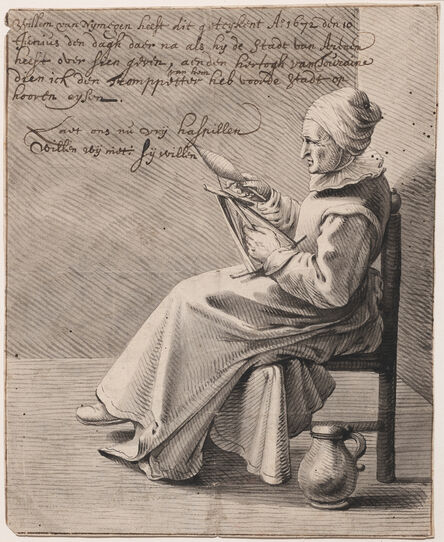 Willem van Nymegen heeft dit geteykent A° 1672 den 10
Junius den dagh daer na als hy de Stadt van Arnem
heeft over sien geven, aen den hertogh van Touraine
van hem
dien ick den Tromppetter heb voor de Stadt op
hooren eysen.
Laet ons nu vry haspillen
Willen wy niet: sy willen